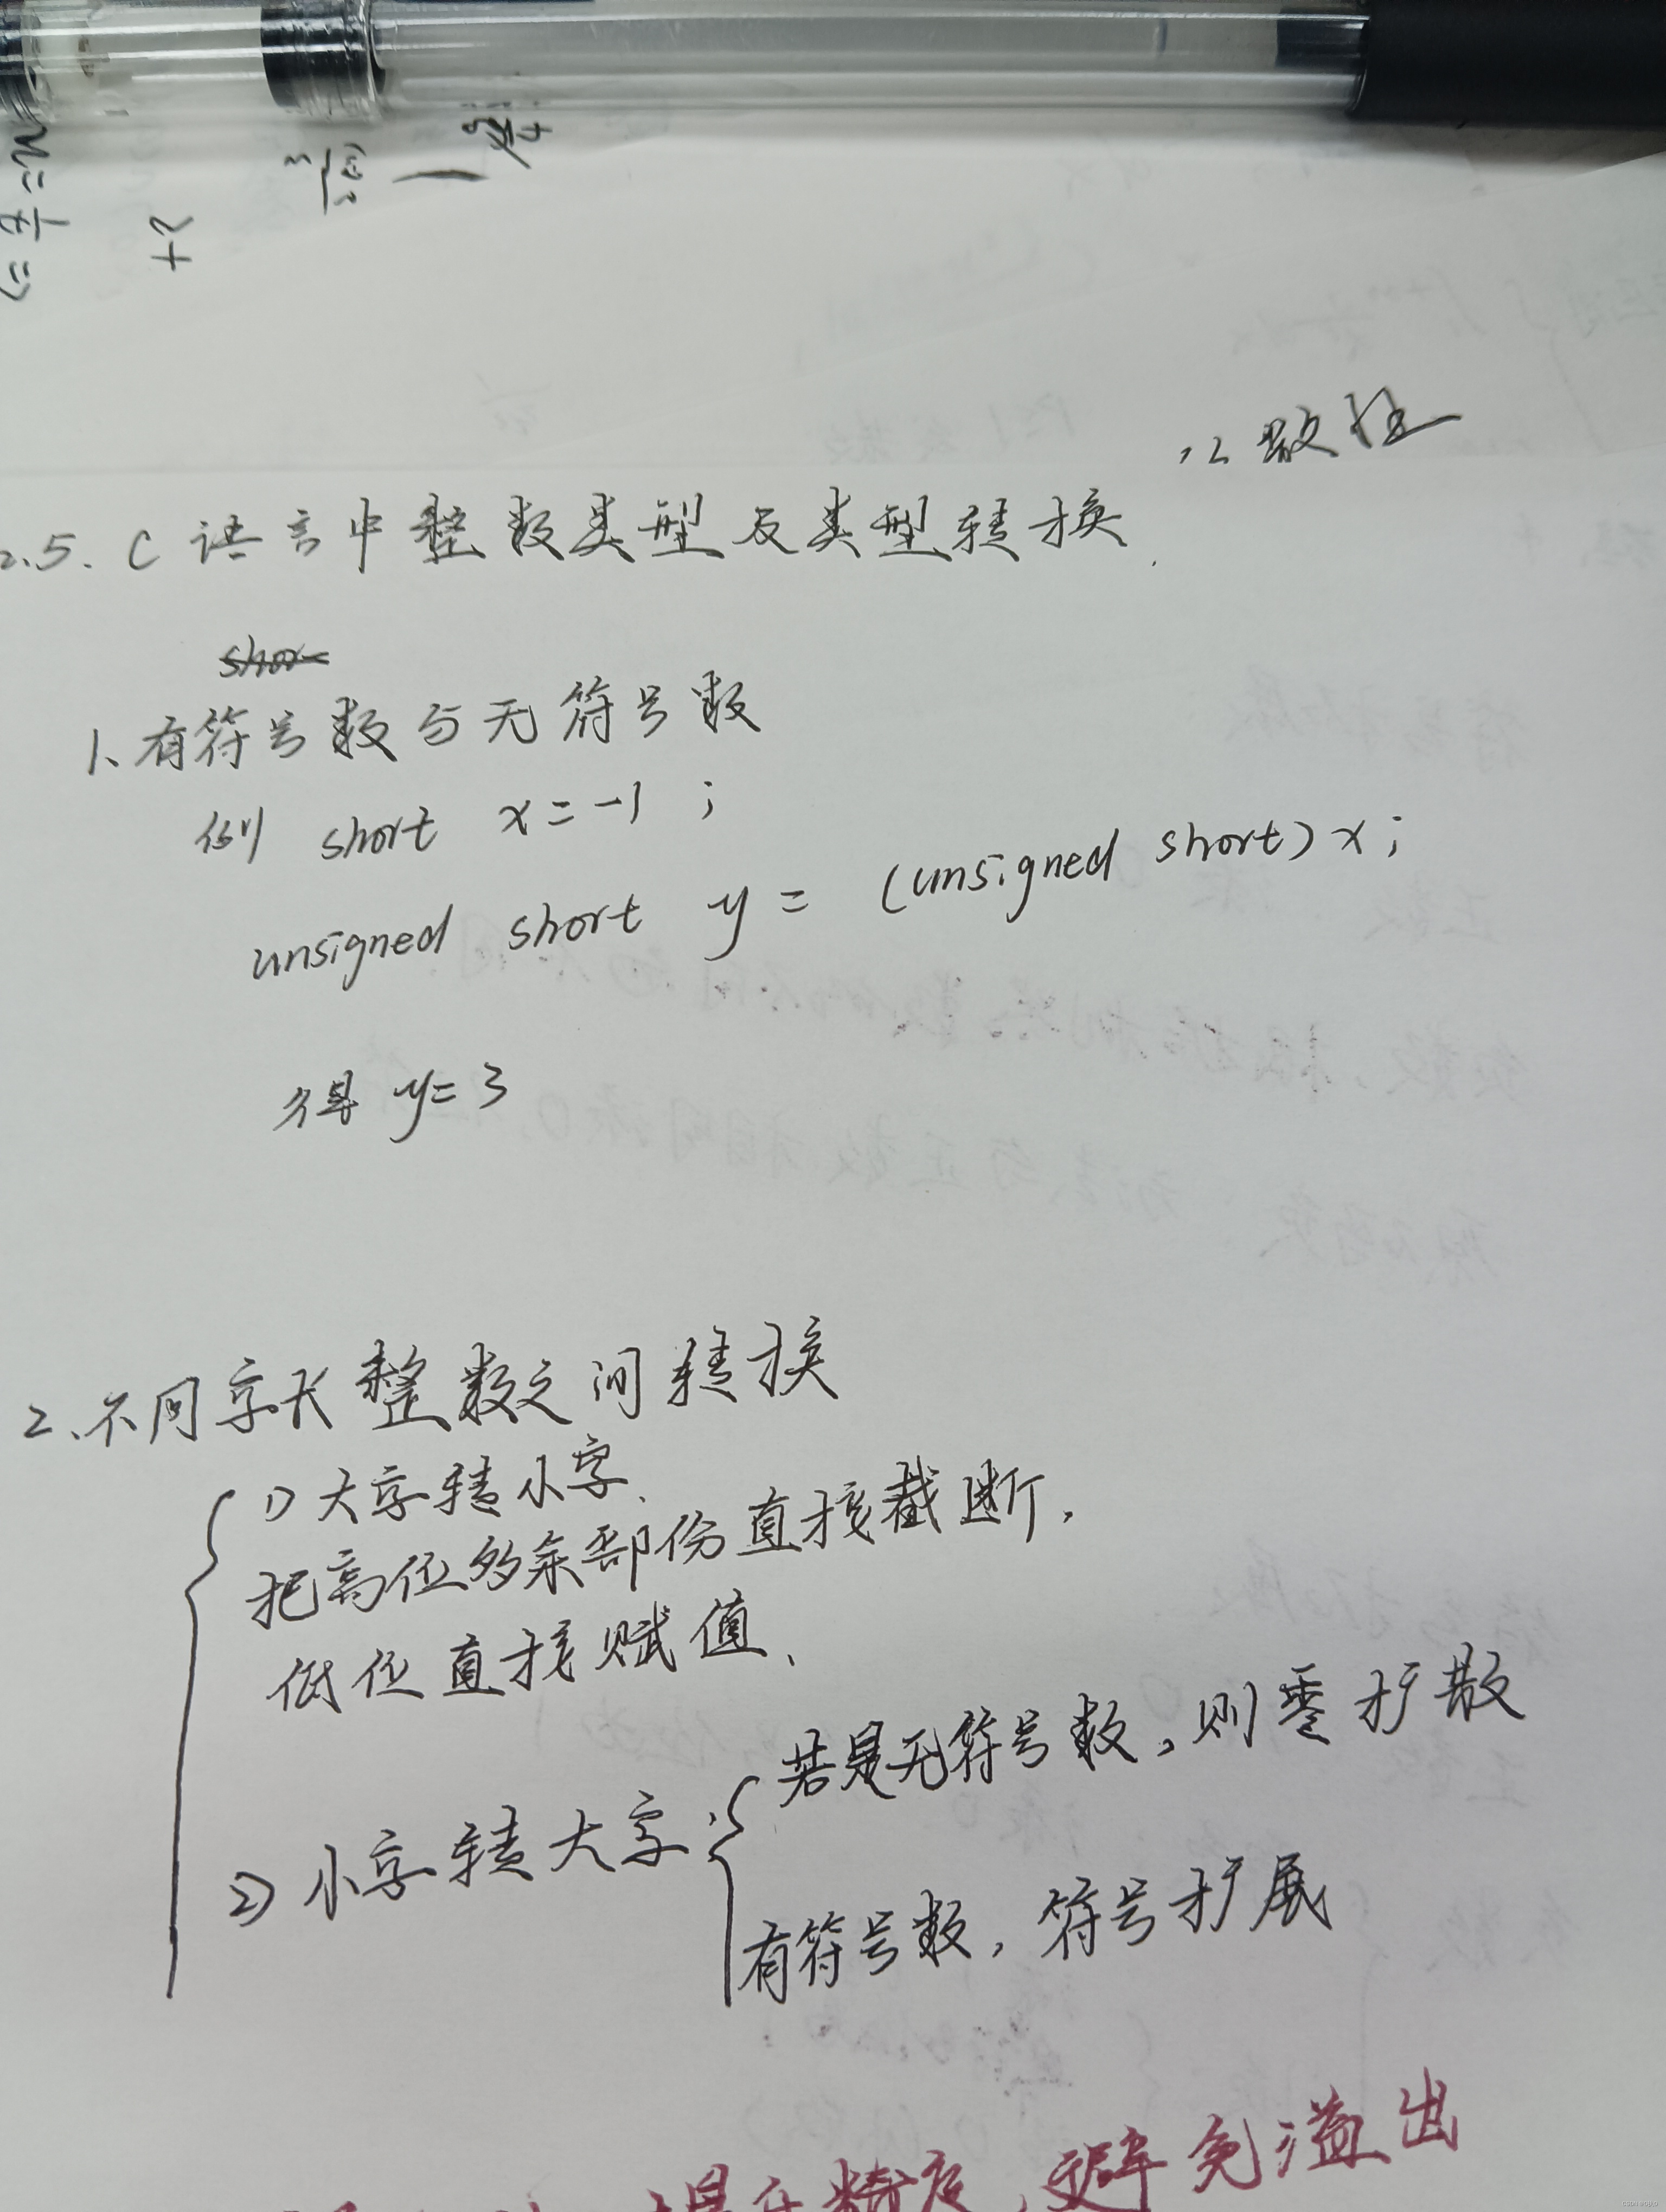 数
2.5. C语言中整数类型及类型转换.
shor
1、有符号数与无符号数
例 short x=-1 ;
unsigned short y = (unsigned short) x;
得 y=3
2、不同字长整数之间转换
1) 大字转小字、
把高位多余部份直接截断,
低位直接赋值、
若是无符号数,则零扩散
2) 小字转大字:
有符号数,符号扩展
精度,避免溢出